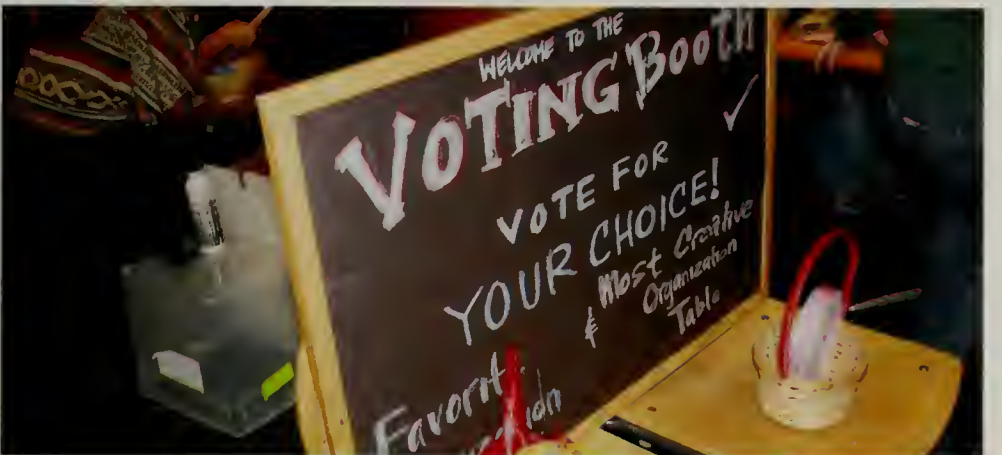 WELCOME TO THE
VOTING Booth
VOTE FOR
YOUR CHOICE!
& Most Creative
Organization
Table
Favorit